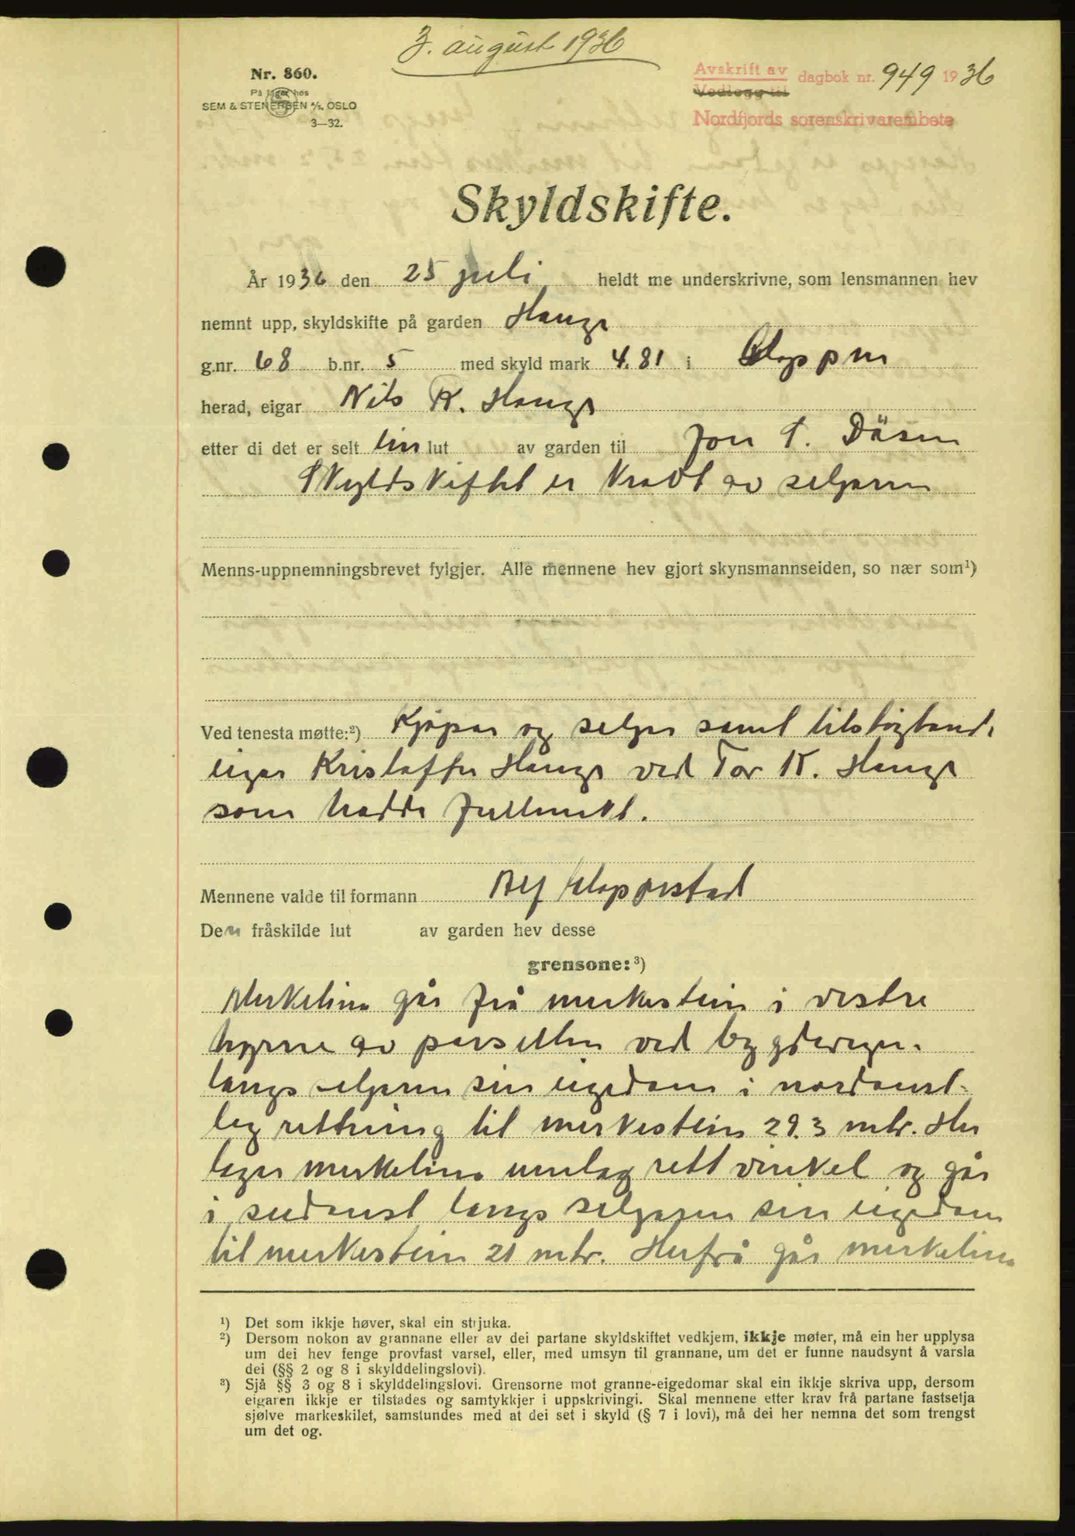 3. august 1936
Nr. 860.
På lager hos
SEM & STENERSEN A/S, OSLO
3—32.
Avskrift av
Vedlegg til
dagbok nr. 949 1936
Nordfjords sorenskrivarembete
Skyldskifte.
År 1936 den 25 juli heldt me underskrivne, som lensmannen hev
nemnt upp, skyldskifte på garden Hauge
g.nr. 68 b.nr. 5 med skyld mark 4.81 i Gloppen
herad, eigar Nils K. Hauge
etter di det er selt ein lut av garden til Jon S. Dåsen
Skyldskiftet er kravt av seljaren
Menns-uppnemningsbrevet fylgjer. Alle mennene hev gjort skynsmannseiden, so nær som¹)
Ved tenesta møtte:²) Kjøpar og seljar samt tilstøytande
eigar Kristoffer Hauge ved Tor K. Hauge
som hadde fullmakt.
Mennene valde til formann Alf Gloppestad
Den fråskilde lut av garden hev desse
grensone:³)
Merkelina går frå merkestein i vestre
hyrne av parsellen ved bygdevegen.
langs seljaren sin eigedom i nordaust-
leg rettning til merkestein 29.3 mtr. Her
lager merkelina umlag rett vinkel og går
i sudaust langs seljaren sin eigedom
til merkestein 21 mtr. Herfrå går merkelina
¹) Det som ikkje høver, skal ein strjuka.
²) Dersom nokon av grannane eller av dei partane skyldskiftet vedkjem, ikkje møter, må ein her upplysa
um dei hev fenge provfast varsel, eller, med umsyn til grannane, um det er funne naudsynt å varsla
dei (§§ 2 og 8 i skylddelingslovi).
³) Sjå §§ 3 og 8 i skylddelingslovi. Grensorne mot granne-eigedomar skal ein ikkje skriva upp, dersom
eigaren ikkje er tilstades og samtykkjer i uppskrivingi. Skal mennene etter krav frå partane fastsetja
sjølve markeskilet, samstundes med at dei set i skyld (§ 7 i lovi), må dei her nemna det som trengst
um det og.